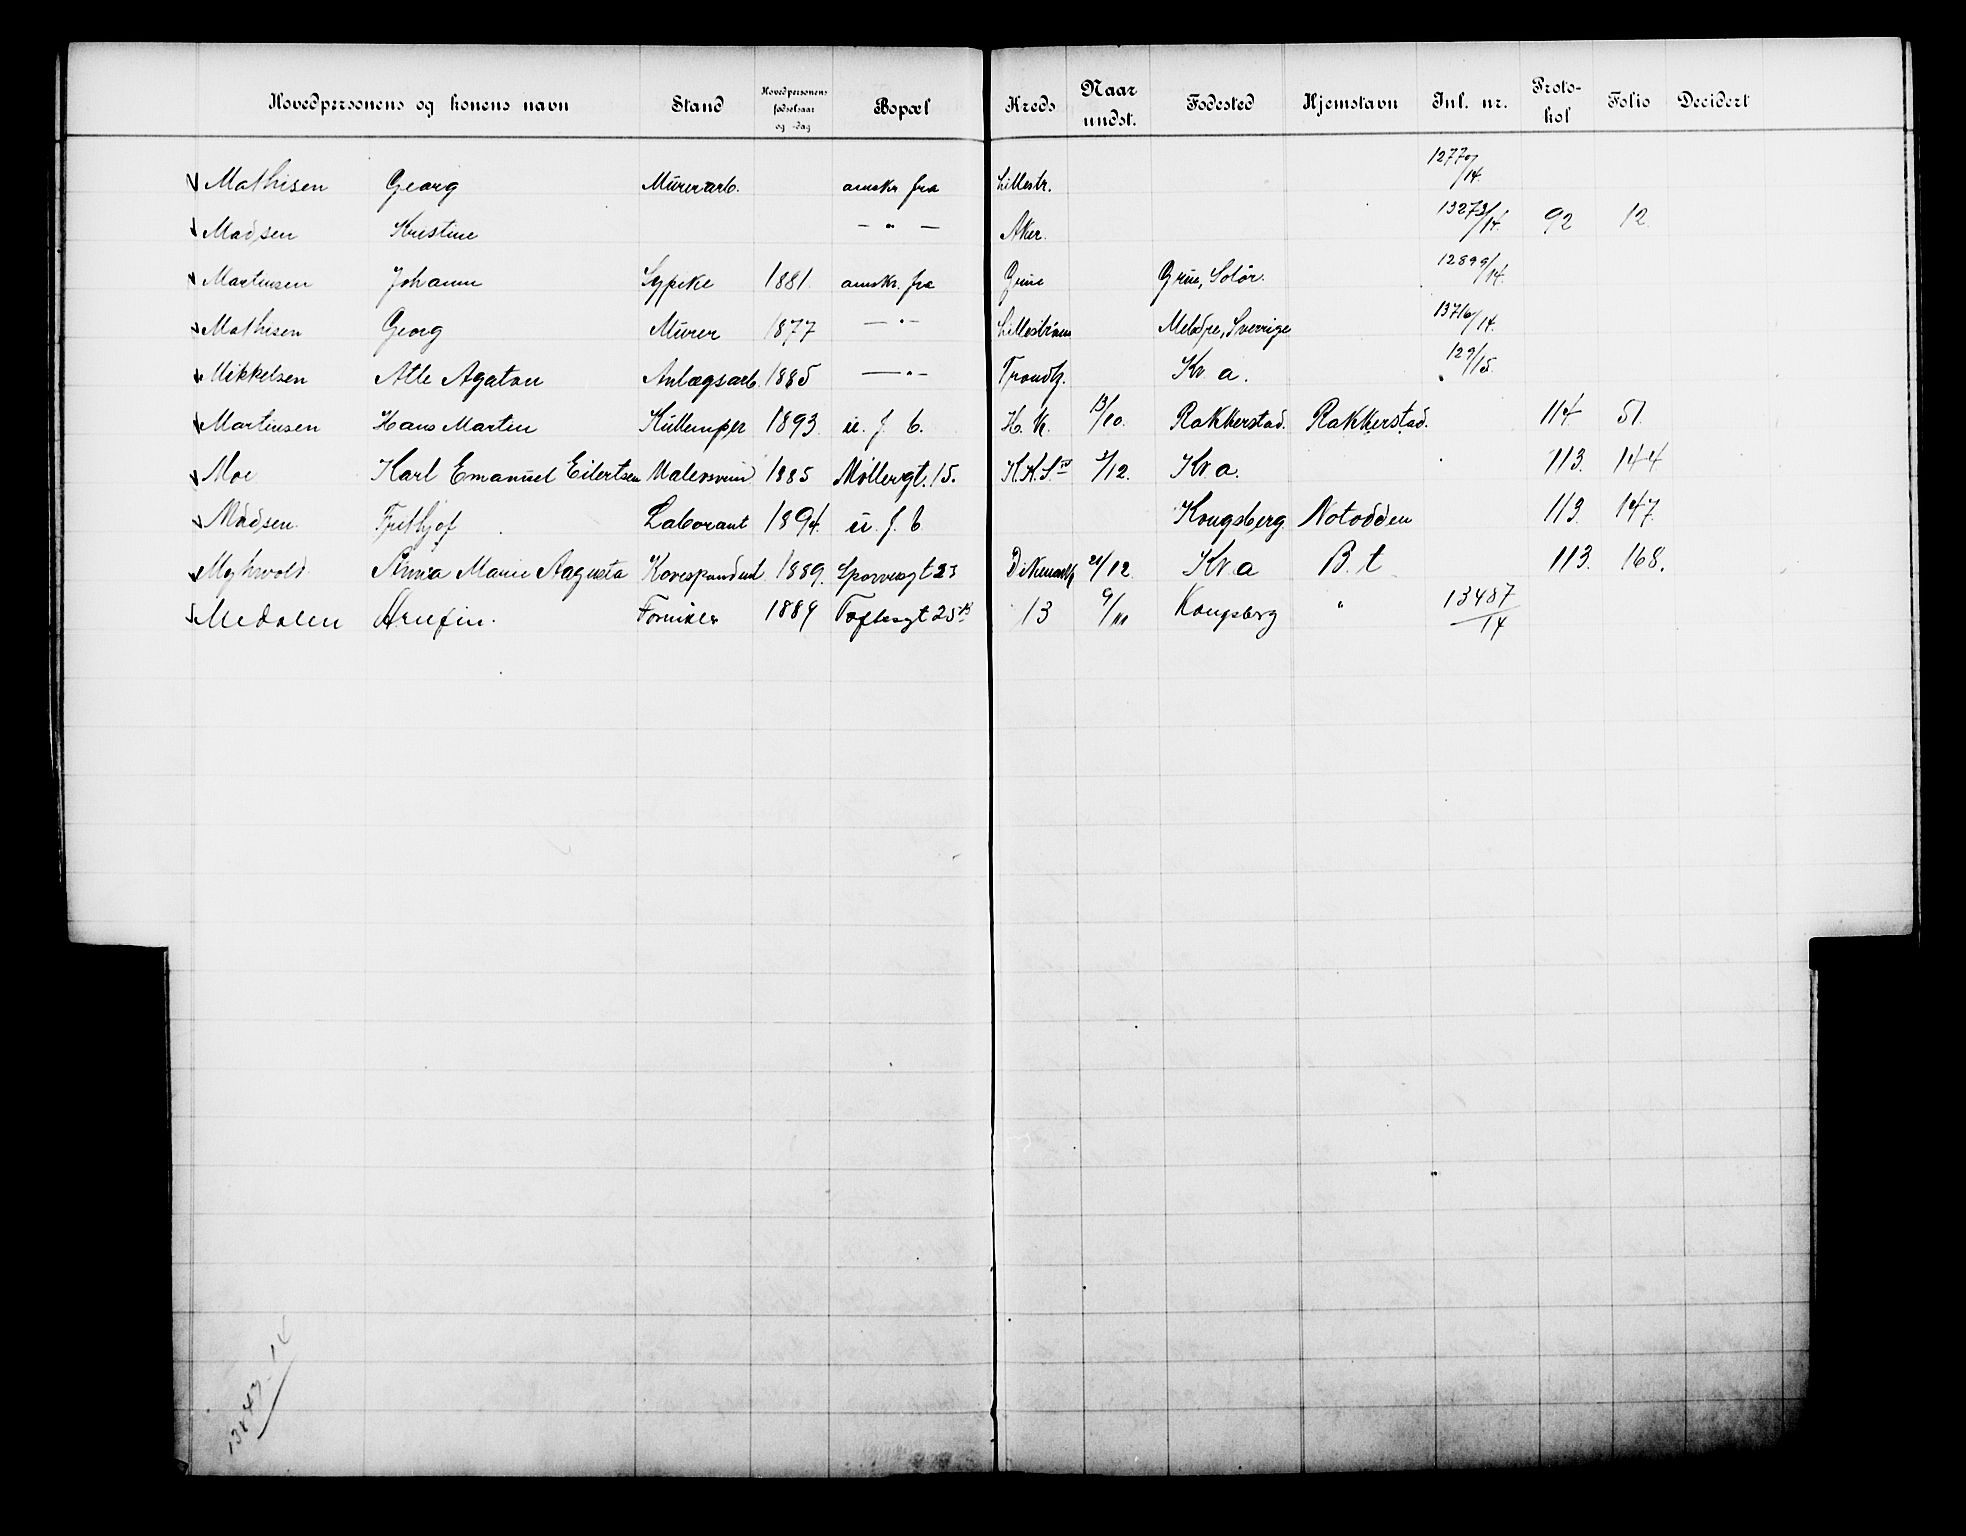 Hovedpersonens og konens navn Stand Hovedpersonens fødselsaar og -dag Bopæl Kreds Naar undst. Fødested Hjemstavn Inl. nr. Proto-kol Folio Decidert
Mathisen Georg Murerarb. amskr fra Lillestr. 1277/14.
Madsen Kristine — " — Aker. 13273/14. 92 12.
Martinsen Johanne Sypike 1881. amskr. fra Grue Grue, Solør. 12899/14.
Mathisen Georg Murer 1877 — " — Sverrige 13716/14.
Mikkelsen Atle Agaton Anlægsarb. 1885 — " — Trondhj. Kr. a. 129/15.
Martinsen Hans Martin Kullemper 1893. u. f. b. H. K. 13/10. Rakkerstad. Rakkerstad. 114. 51.
Moe Karl Emanuel Eilertsen Malersvend 1885 Møllergt. 15. /12. Kr. a. 113. 144
Madsen Frithjof Laborant 1894. u. f. b Kongsberg. Notodden 113. 147.
Myhrvold Anna Marie Augusta Korespondent 1889. Sporveisgt 23 Dikemark 21/12. Kr. a B. t. 113. 168.
Medalen Arnfin. Formiler 1889 Toftesgt 25 13 9/11 Kongsberg " 13487/14